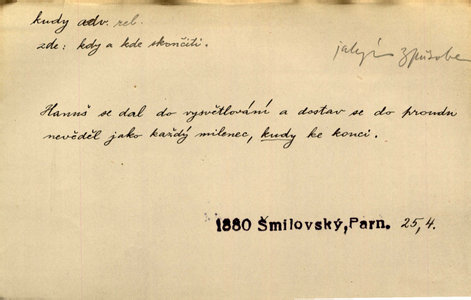 kudy adv. rel.
zde: kdy a kde skončiti.
jakým způsobem
Hanuš se dal do vysvětlování a dostav se do proudu
nevěděl jako každý milenec, kudy ke konci.
1880 Šmilovský, Parn. 25, 4.